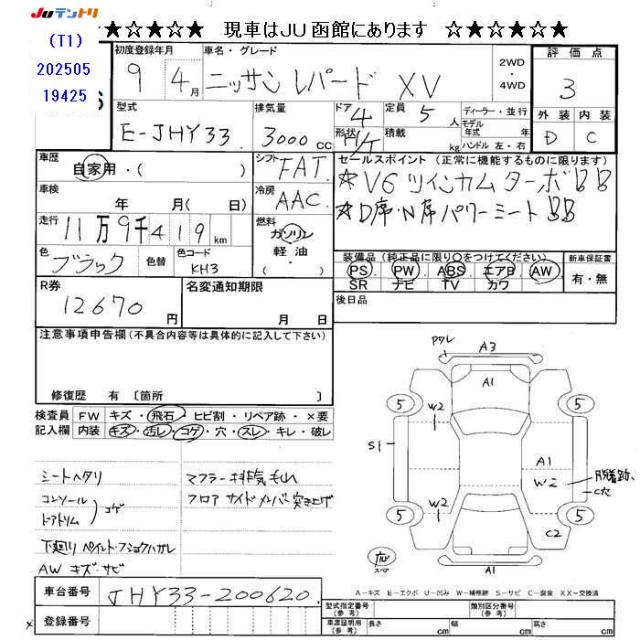 JUテントリ
★☆★☆★ 現車はJU函館にあります ☆★☆★☆★
(T1)
202505
19425
初度登録年月
9 4月
車名・グレード
ニッサン レパード XV
2WD
・
4WD
評価点
3
型式
E-JHY33
排気量
3000cc
ドア
4
形状
H/T
定員
5人
積載
kg
ディーラー・並行
モデル年式 年
ハンドル 左・右
外装 内装
D C
車歴
自家用・( )
シフト
FAT
冷房
AAC
セールスポイント(正常に機能するものに限ります)
☆V6ツインカムターボBB
☆D席・N席パワーシートBB
車検
年 月( 日)
走行
11万9千419km
燃料
ガソリン
軽油
・
( )
色
ブラック
色替
色コード
KH3
装備品(純正品に限り○をつけてください)
PS・PW・ABS・エアB・AW
SR ナビ TV カワ
新車保証書
有・無
R券
12670円
名変通知期限
月 日
後日品
注意事項申告欄(不具合内容等は具体的に記入して下さい)
修復歴 有〔箇所 〕
検査員記入欄
FW キズ・飛石・ヒビ割・リペア跡・×要
内装 キズ・汚レ・コゲ・穴・スレ・キレ・破レ
シートヘタリ
コンソール
ドアトリム
コゲ
下廻リ ペイント・フショクハガレ
AW キズ・サビ
マフラー排気もれ
フロア サイドメンバー突き上げ
ワレ
A3
A1
5
5
W2
S1
A1
W2
脱着跡
C穴
W2
5
5
C2
A1
A-キズ E-エクボ U-凹み W-補修跡 S-サビ C-腐食 XX-交換済
車台番号
JHY33-200620
登録番号
型式指定番号
(参考)
類別区分番号
(参考)
車庫証明用
(参考)
長さ cm
幅 cm
高さ cm